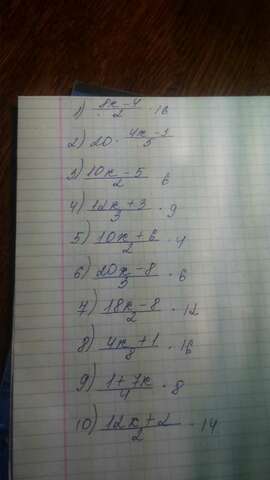 1) (8x-4)/2 · 16
2) 20 · (4x-1)/5
3) (10x-5)/2 · 6
4) (12x+3)/3 · 9
5) (10x+6)/2 · 4
6) (20x-8)/3 · 6
7) (18x-8)/2 · 12
8) (4x+1)/8 · 16
9) (1+7x)/4 · 8
10) (12x+2)/2 · 14